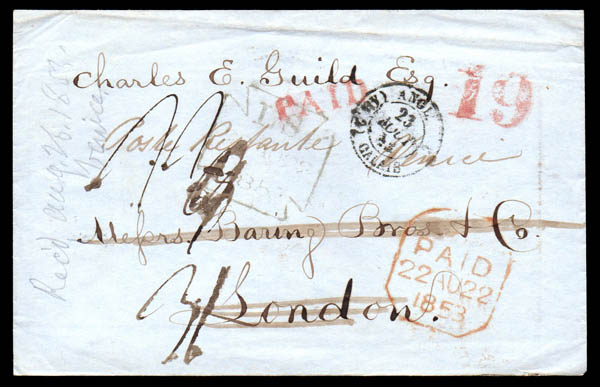 Charles E. Guild Esq.
PAID
19
ANGL.
23
AOUT
53
CALAIS
Poste Restante
Venice
Messrs Baring Bros & Co.
London.
PAID
22 AU 22
1853
Rec'd Aug 26. 1853.
Venice